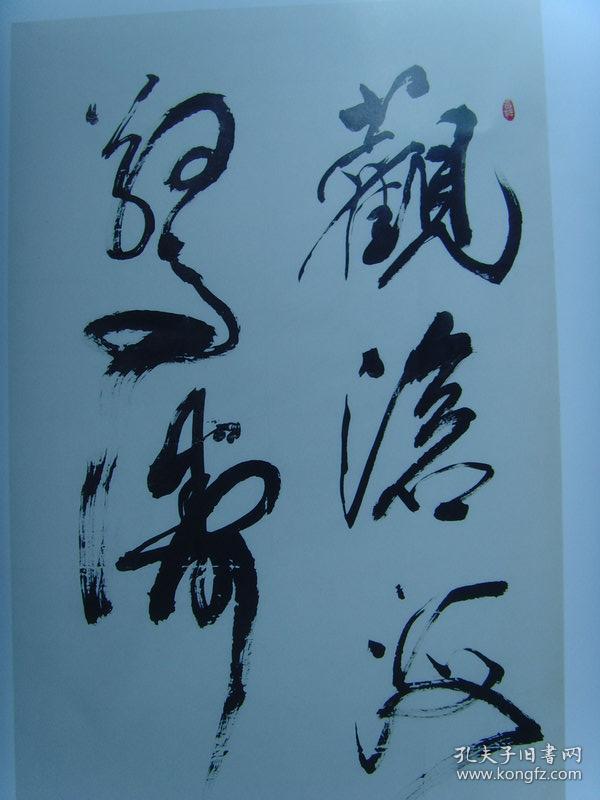 觀滄海
驚濤
孔夫子旧书网
www.kongfz.com